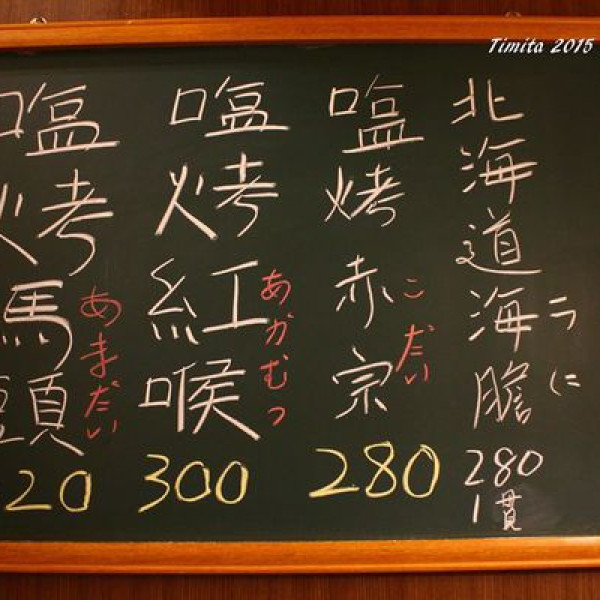 Timita 2015
北海道海膽
うに
280
1貫
嗑烤赤宗
こだい
280
嗑烤紅喉
あかむつ
300
嗑烤馬頭
あまだい
20